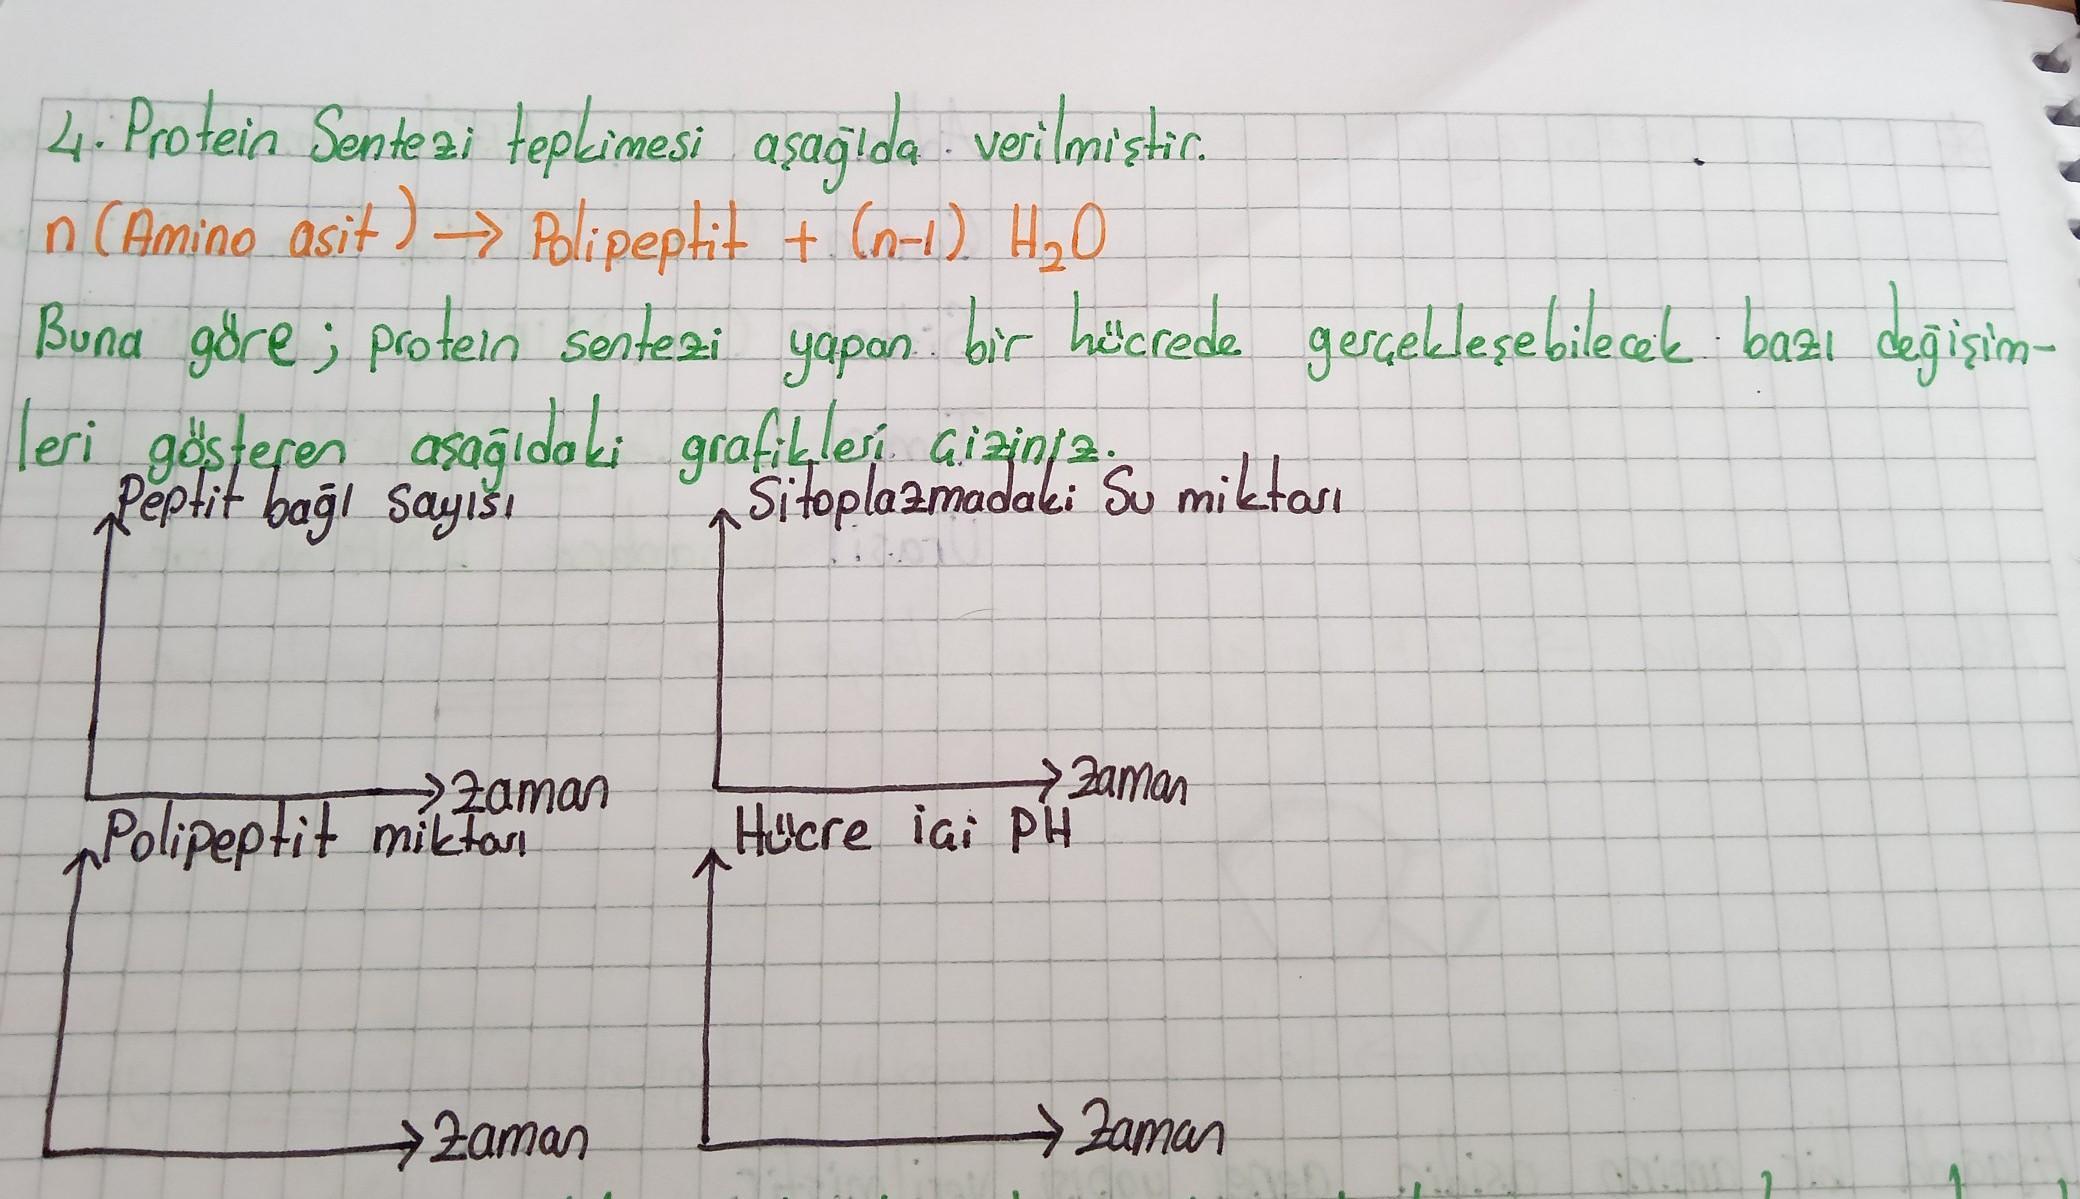 4. Protein Sentezi tepkimesi aşağıda verilmiştir.
n (Amino asit) → Polipeptit + (n-1) H₂O
Buna göre; protein sentezi yapan bir hücrede gerçekleşebilecek bazı değişim-
leri gösteren aşağıdaki grafikleri çiziniz.
Peptit bağı sayısı
Sitoplazmadaki Su miktarı
Zaman
Zaman
Polipeptit miktarı
Hücre içi PH
Zaman
Zaman